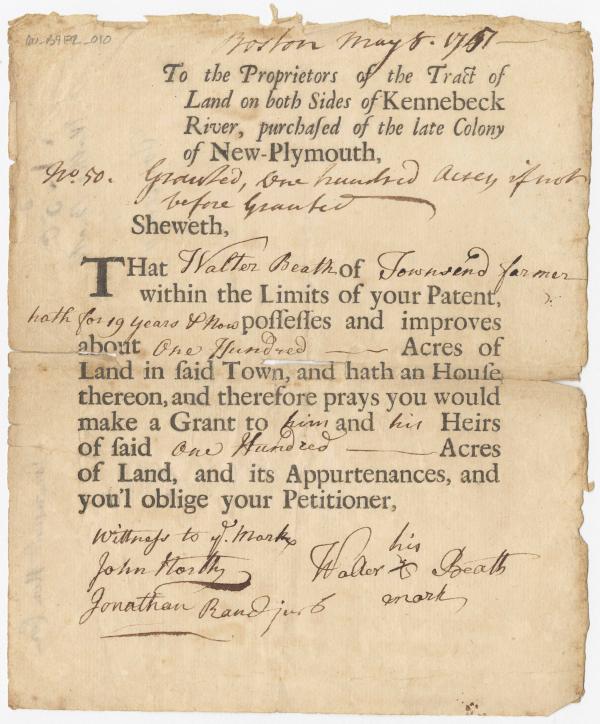 Boston May 8. 1767
To the Proprietors of the Tract of
Land on both Sides of Kennebeck
River, purchaſed of the late Colony
of New-Plymouth,
No. 50. Granted, One hundred Acres if not
before Granted
Sheweth,
THat Walter Beath of Townsend farmer
within the Limits of your Patent,
hath for 19 years & Now poſſeſſes and improves
about One Hundred Acres of
Land in ſaid Town, and hath an Houſe
thereon, and therefore prays you would
make a Grant to him and his Heirs
of ſaid One Hundred Acres
of Land, and its Appurtenances, and
you'l oblige your Petitioner,
Wittness to ye. Mark
his
John
Walter Beath
mark
Jonathan